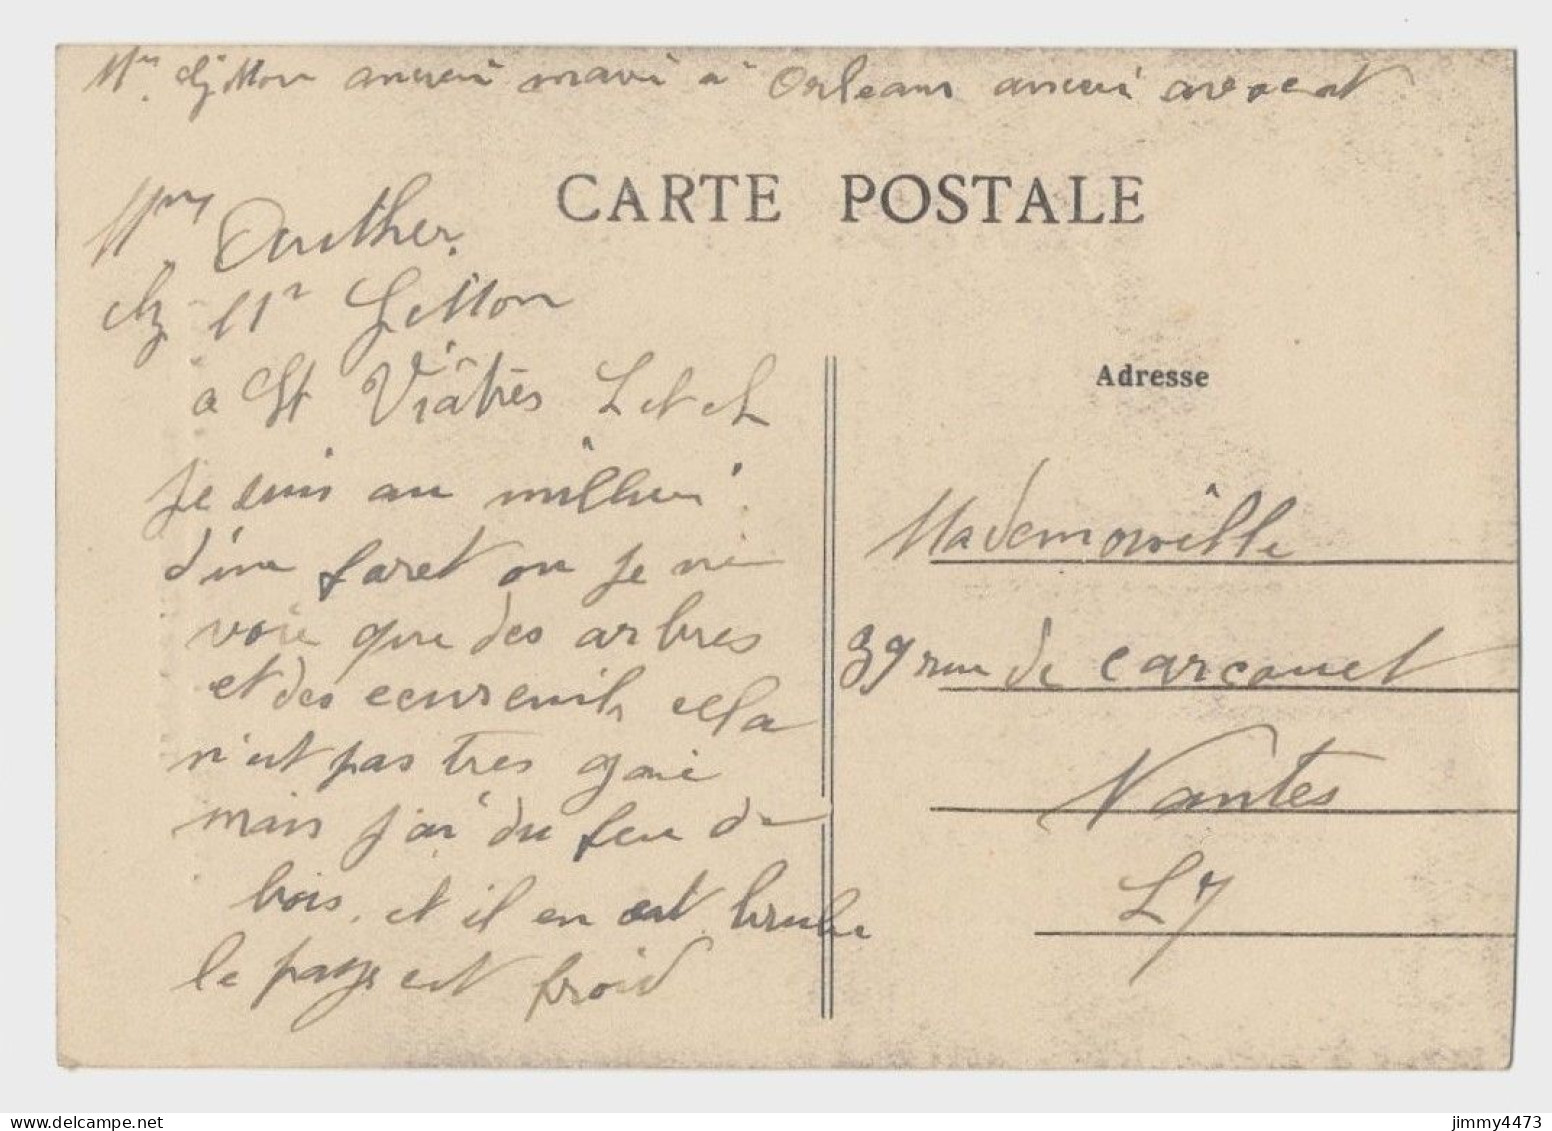 ancien maire à Orléans ancien avocat
CARTE POSTALE
Mme Outher
chez Mr Gitton
a St Viâtres L et ch
Adresse
je suis au millieu
d'une faret ou je ne
voie que des arbres
et des ecureuils cela
n'est pas tres gaie
mais j'ai du feu de
bois. et il en est brule
le pays est froid
Mademoiselle
39 rue de Carcouet
Nantes
L I
jimmy4473